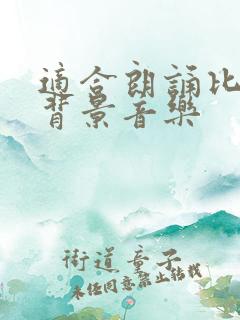 適合朗誦比
背景音樂
街道童子
未任同意禁止轉載